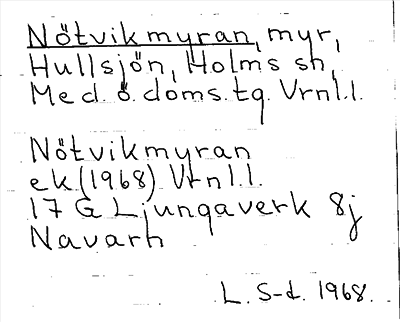 Nötvikmyran, myr,
Hullsjön, Holms sn,
Med. ö. doms. tg. Vrnl.l.
Nötvikmyran
ek (1968) Vrnl.l.
17 G Ljungaverk 8j
Navarn
L. S-d. 1968.